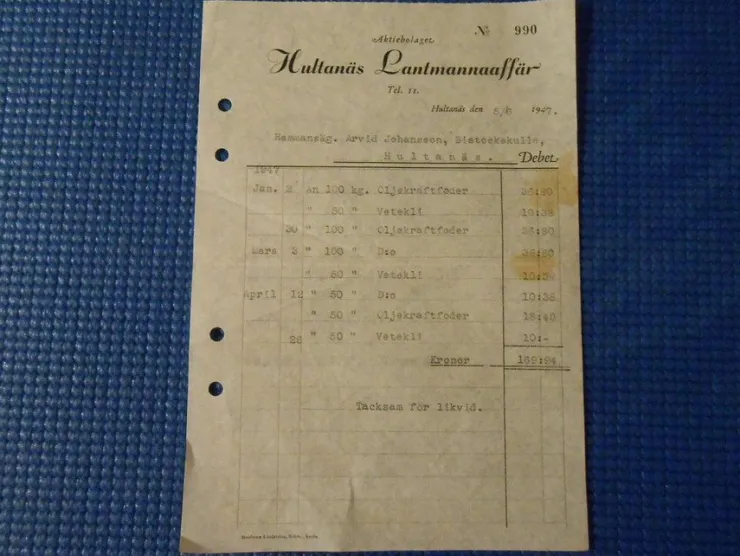 № 990
Aktiebolaget
Hultanäs Lantmannaaffär
Tel. 11.
Hultanäs den 5/6 1947.
Hemmansäg. Arvid Johansson, Bistockskulle,
Hultanäs. Debet
1947
Jan. 2 An 100 kg. Oljekraftfoder 36:80
" 50 " Vetekli 10:38
30 " 100 " Oljekraftfoder 36:80
Mars 3 " 100 " D:o 36:80
" 50 " Vetekli 10:38
April 12 " 50 " D:o 10:38
" 50 " Oljekraftfoder 18:40
26 " 50 " Vetekli 10:-
Kronor 169:94
Tacksam för likvid.